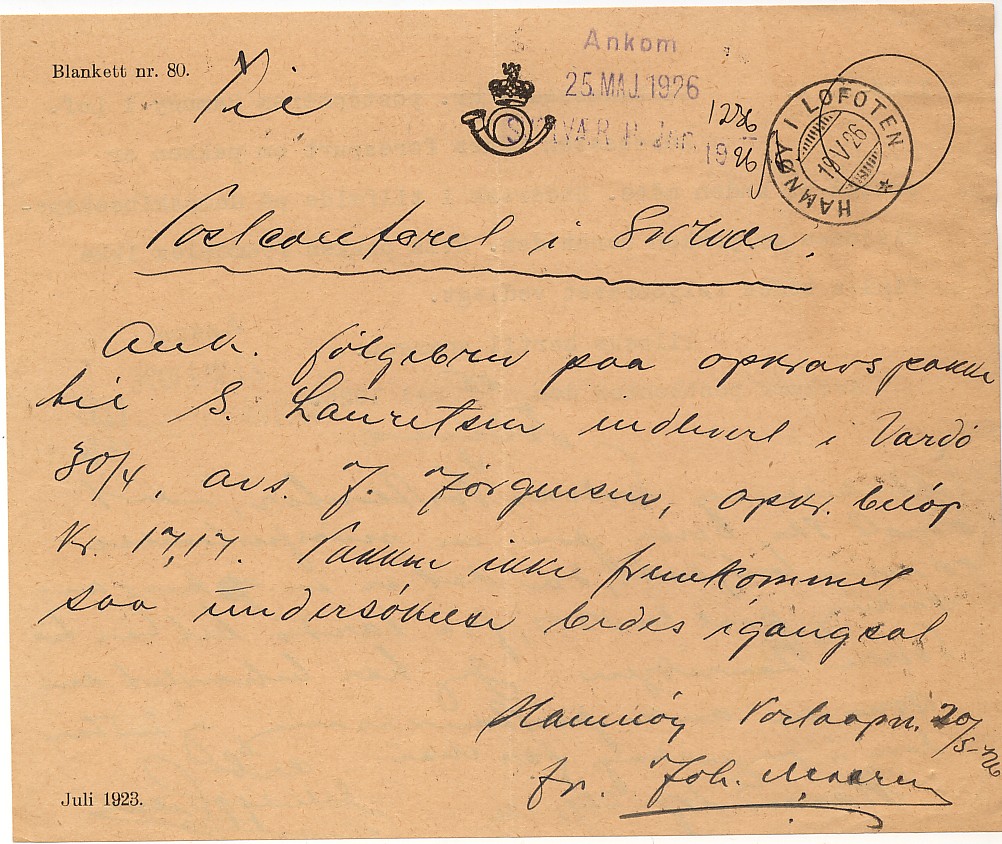 Blankett nr. 80.
Til
Ankom
25. MAJ. 1926
SVOLVÆR P. Jnr. 1236
1926
HAMNØY I LOFOTEN
19 V 26
Postcontoret i Svolvær.
Ank. følgebrev paa opkravspakke
til S. Lauretsen indlevert i Vardö
30/4, avs. J. Jörgensen, opkr. belöp
Kr. 17,17. Pakken ikke fremkommet
saa undersökelse bedes igangsat
Hamnöy Postaapn. 20/5-26
fr. Joh.
Juli 1923.